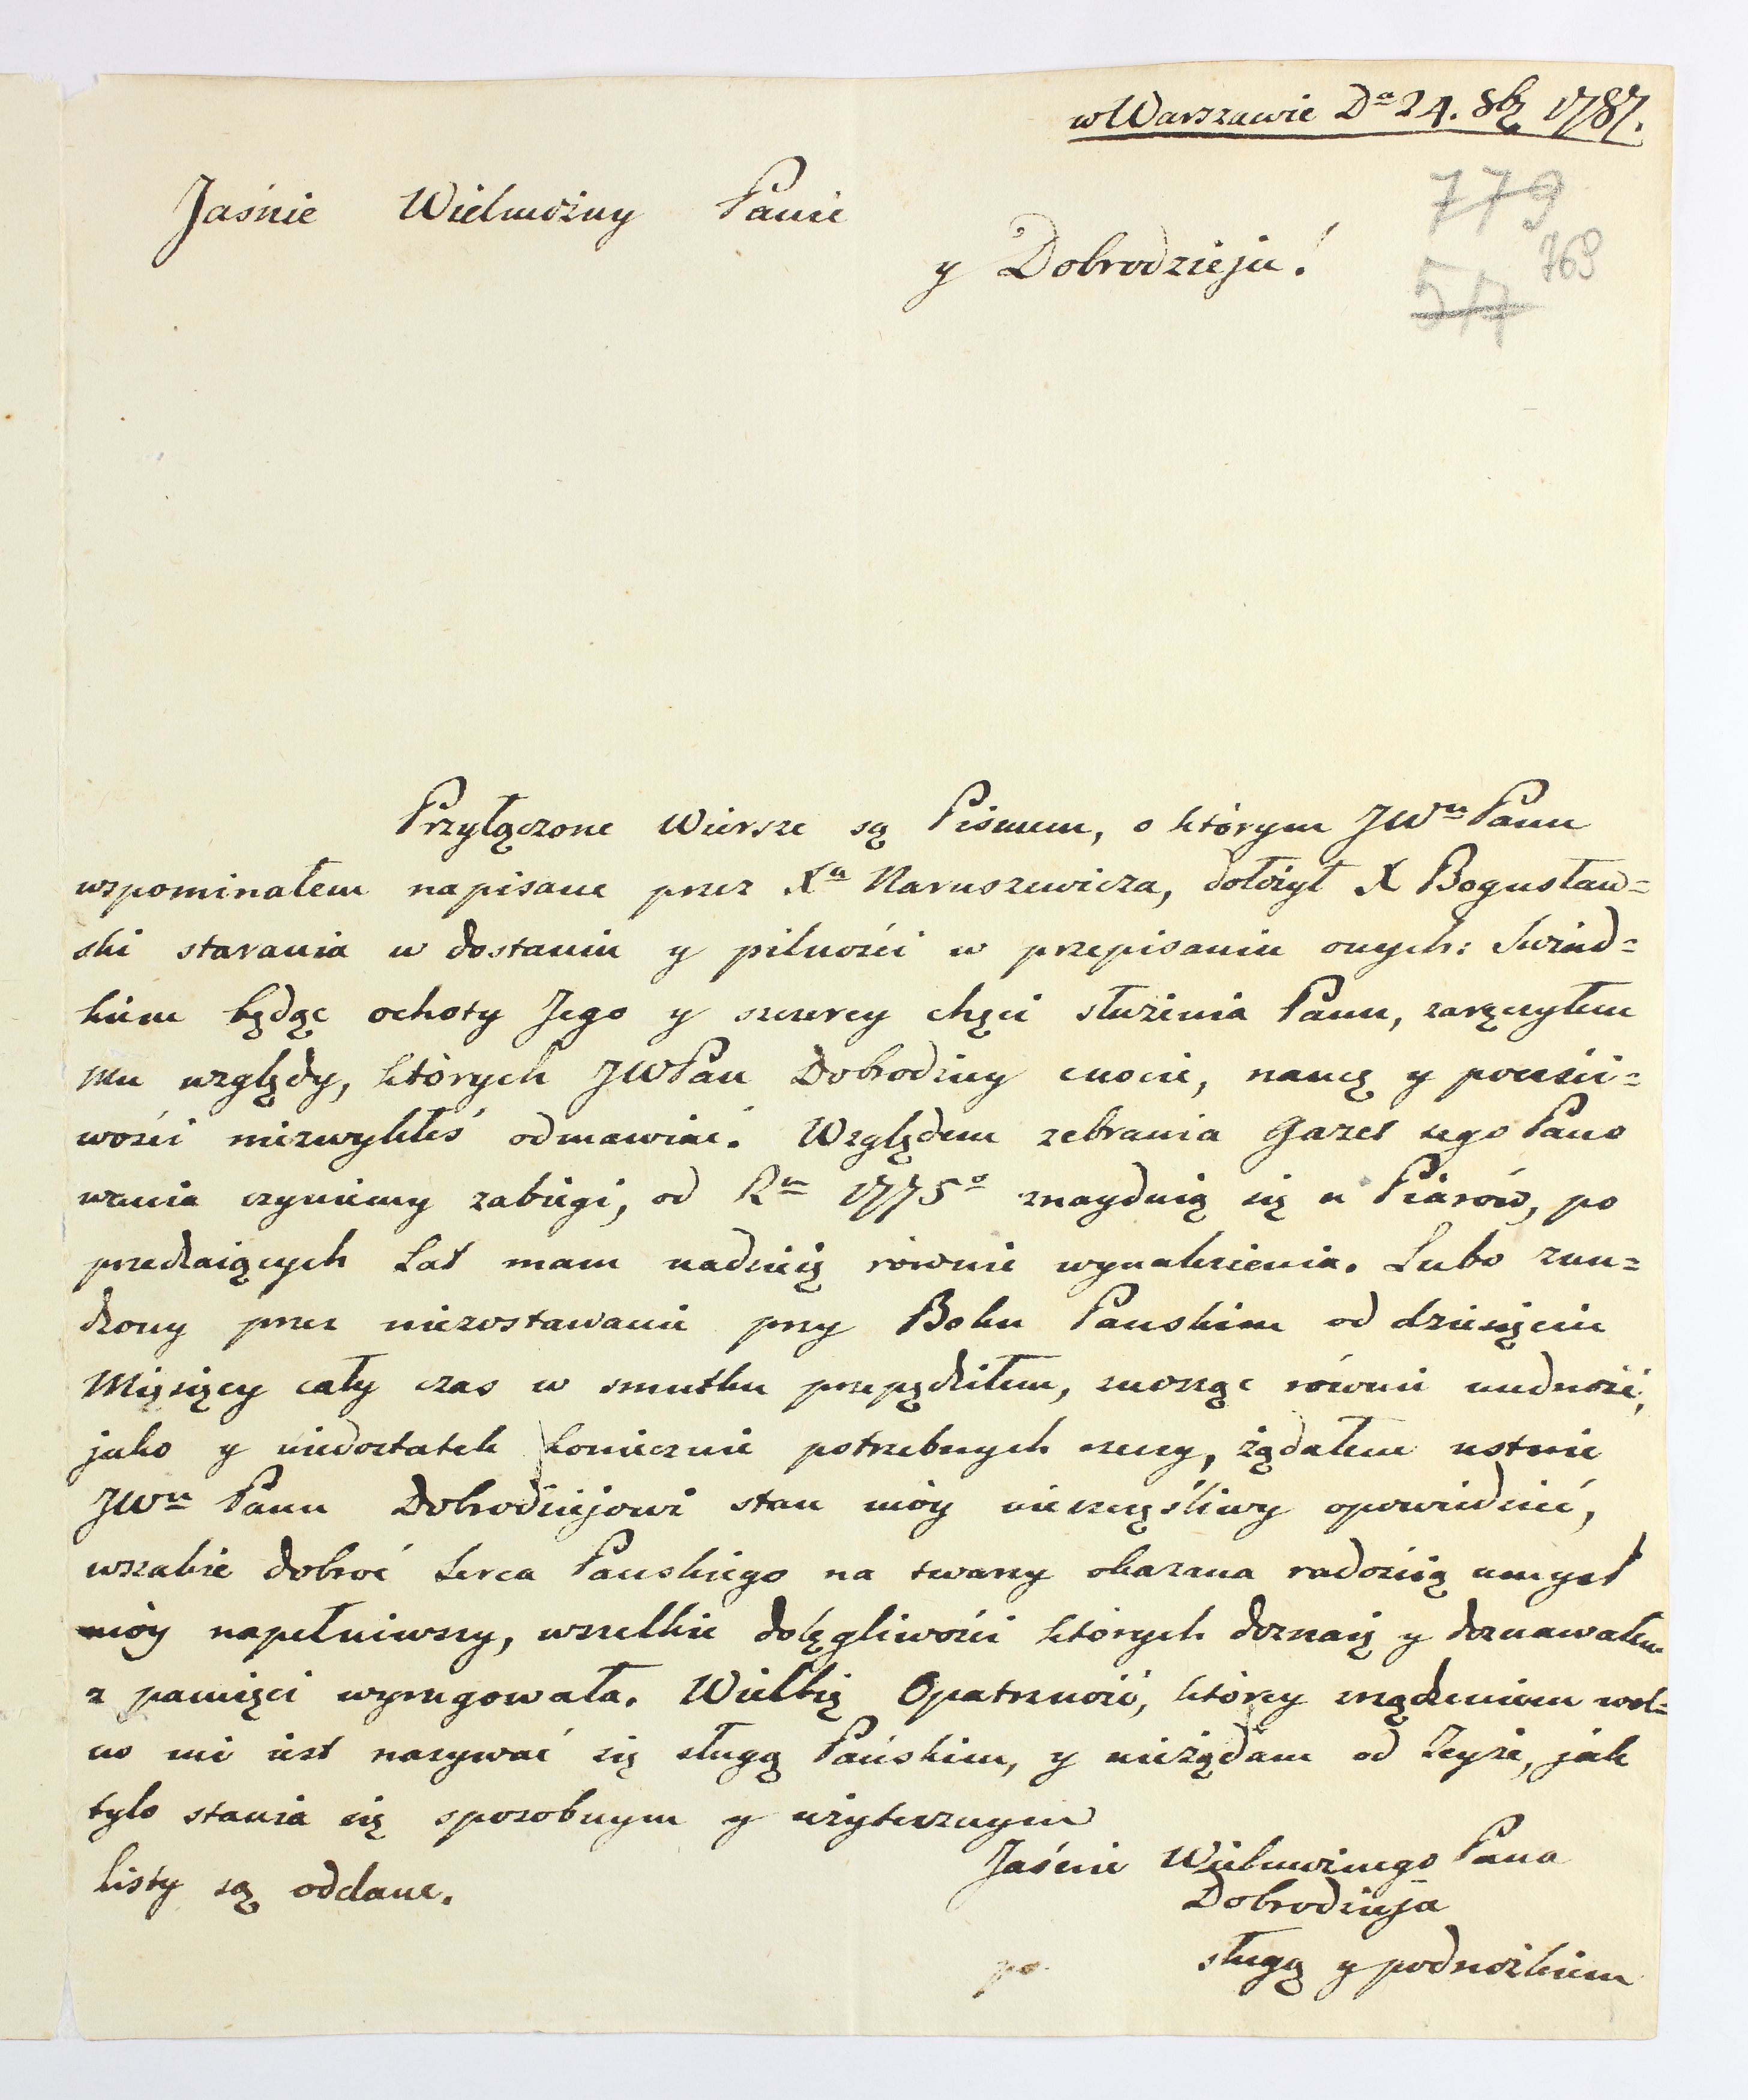 w Warszawie Dª 24. 8bʳ 1787.
Jaśnie Wielmożny Panie
y Dobrodzieju!
779
769
517
Przyłączone Wiersze są Pismem, o którym JWᵘ Panu
wspominałem napisane przez Xª Naruszewicza, dołożył X Bogusław=
ski starania w dostaniu y pilności w przepisaniu onych: Swiad=
kiem będąc ochoty Jego y szczerey chęci służenia Panu, zaręczyłem
mu względy, których JWPan Dobrodziey cnocie, naucę y poczci=
wości niezwykłeś odmawiać. Względem zebrania Gazet tego Pano
wania czyniemy zabiegi, od Rᵘ 1775º znayduią się u Piarów, po
przedzaiących Lat mam nadzieię równie wynalezienia. Lubo znu=
dzony przez niezostawanie przy Boku Panskim od dziesięciu
Mięsięcy cały czas w smutku przepędziłem, znosząc równie nudność,
jako y niedostatek koniecznie potrzebnych rzeczy, żądałem ustnie
JWᵘ Panu Dobrodziejowi stan móy nieszczęśliwy opowiedzieć,
wszakże dobroć Serca Panskiego na twarzy okazana radością umysł
móy napełniwszy, wszelkie dolęgliwości których doznaię y doznawałem
z pamięci wyrugowała. Wielbię Opatrzność, którey zrządzeniem wol=
no mi iest nazywać się sługą Pańskim, y nieżądam od Teyże, jak
tylo stania się sposobnym y użytecznym
Jaśnie Wielmożnego Pana
Listy są oddane.
Dobrodzieja
sługą y podnożkiem